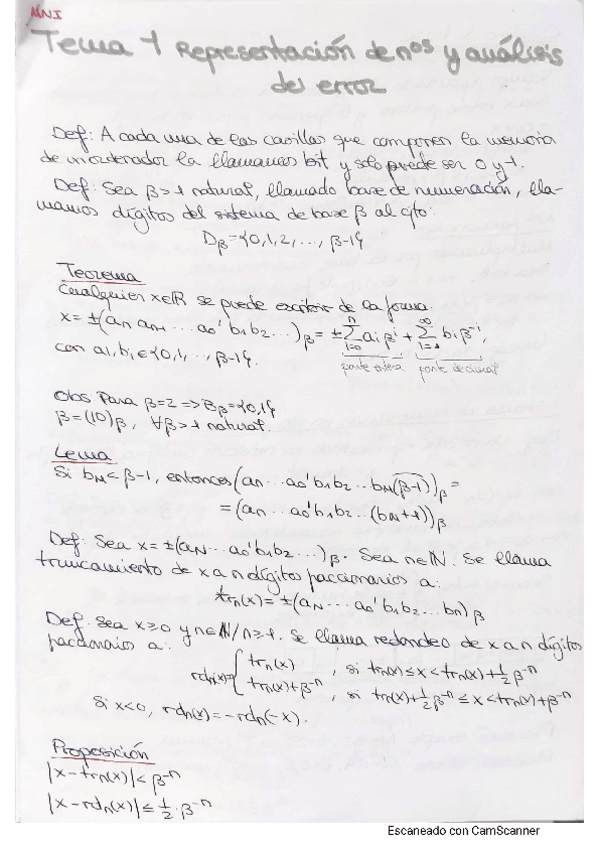 MNI
Tema 1 Representación de nos y análisis
del error
Def: A cada una de las casillas que componen la memoria
de un ordenador la llamamos bit y solo puede ser 0 y 1.
Def: Sea β>1 natural, llamado base de numeración, lla-
mamos dígitos del sistema de base β al cjto:
Dβ={0,1,2,...,β-1}
Teorema
Cualquier x∈ℝ se puede escribir de la forma:
x = ±(an an-1 ... a0'b1b2...)β = ±∑_{i=0}^{n} aiβ^i + ∑_{i=1}^{∞} biβ^-i,
con ai,bi∈{0,1,...,β-1}.
parte entera parte decimal
Obs Para β=2 => Bβ={0,1}
β=(10)β, ∀β>1 natural.
Lema
Si bM<β-1, entonces (an...a0'b1b2...bM(β-1))β =
= (an...a0'b1b2...(bM+1))β
Def: Sea x=±(aN...a0'b1b2...)β. Sea n∈ℕ. Se llama
truncamiento de x a n dígitos fraccionarios a:
trn(x)=±(aN...a0'b1b2...bn)β
Def: Sea x≥0 y n∈ℕ/n≥1. Se llama redondeo de x a n dígitos
fraccionarios a:
rdn(x)={ trn(x) , si trn(x)≤x<trn(x)+½β^-n
trn(x)+β^-n , si trn(x)+½β^-n≤x<trn(x)+β^-n
Si x<0, rdn(x)=-rdn(-x).
Proposición
|x-trn(x)|<β^-n
|x-rdn(x)|≤½·β^-n
Escaneado con CamScanner